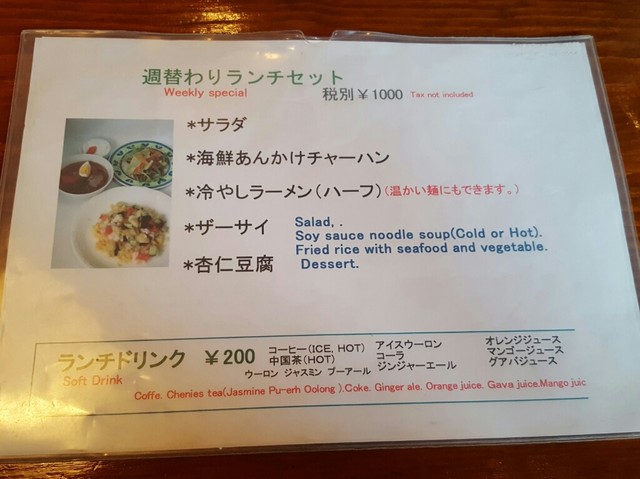 週替わりランチセット
Weekly special
税別¥1000 Tax not included
*サラダ
*海鮮あんかけチャーハン
*冷やしラーメン(ハーフ)(温かい麺にもできます。)
*ザーサイ
*杏仁豆腐
Salad, .
Soy sauce noodle soup(Cold or Hot).
Fried rice with seafood and vegetable.
Dessert.
ランチドリンク ¥200
Soft Drink
コーヒー(ICE, HOT)
中国茶(HOT)
ウーロン ジャスミン プーアール
アイスウーロン
コーラ
ジンジャーエール
オレンジジュース
マンゴージュース
グアバジュース
Coffe. Chenies tea(Jasmine Pu-erh Oolong ).Coke. Ginger ale. Orange juice. Gava juice.Mango juic